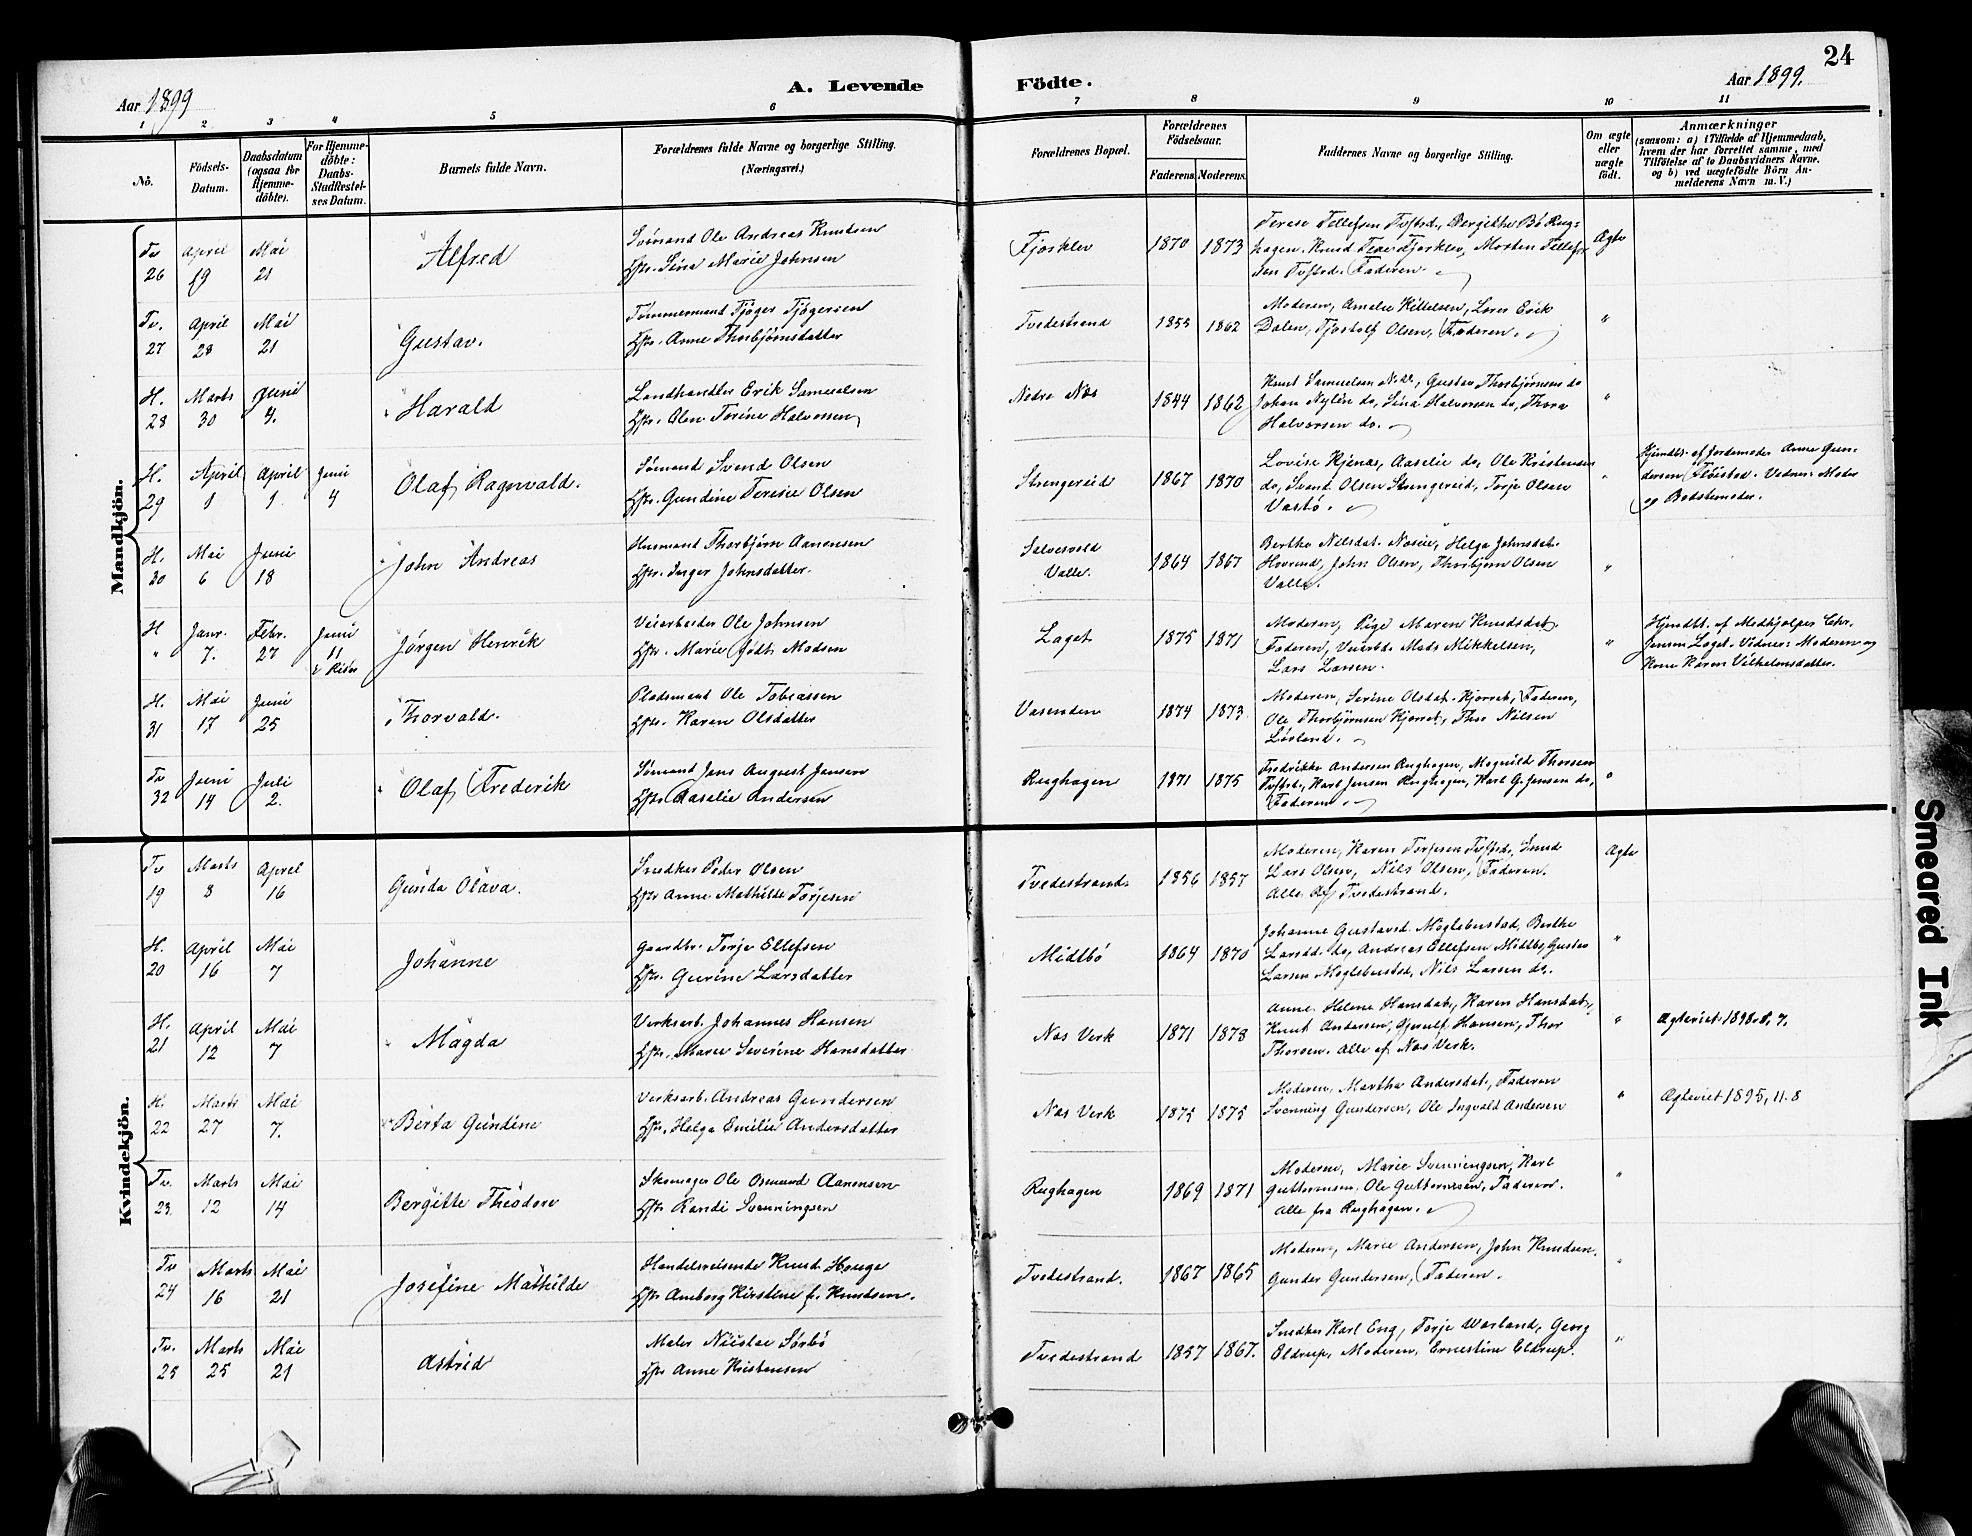 24
Aar 1899
A. Levende
Födte.
Aar 1899.
1 2 3 4 5 6 7 8 9 10 11
No.
Födsels-
Datum.
Daabsdatum
(ogsaa for
Hjemme-
döbte).
For Hjemme-
döbte:
Daabs-
Stadfæstel-
ses Datum.
Barnets fulde Navn.
Forældrenes fulde Navne og borgerlige Stilling.
(Næringsvei.)
Forældrenes Bopæl.
Forældrenes
Födselsaar.
Faderens. Moderens.
Faddernes Navne og borgerlige Stilling.
Om ægte
eller
uægte
födt.
Anmærkninger
(saasom: a) i Tilfælde af Hjemmedaab,
hvem der har forrettet samme, med
Tilföielse af to Daabsvidners Navne.
og b) ved uægtefödte Börn An-
melderens Navn m. V.)
Mandkjön.
Tv 26
April 19
Mai 21
Alfred
Sømand Ole Andreas Knudsen
Hst. Sina Marie Johnsen
Fjorklev
1870 1873
Terese Tellefsen Tvftsd., Bergitte Bö Rug-
hagen, Knud Terje Fjorklev, Morten Tellef-
sen Tvftsd. Faderen.
Ægte
Tv. 27
April 23
Mai 21
Gustav.
Tømmermand Tjøger Tjøgersen
Hst. Anne Thorbjørnsdatter
Tvedestrand
1855 1862
Moderen, Amalie Kittelsen, Lars Erik
Dalen, Tjostolf Olsen, Faderen.
"
H. 28
Marts 30
Juni 4.
Harald
Landhandler Erik Samuelsen
Hst. Olea Torine Halvorsen
Nedre Næs
1844 1862
Knut Samuelsen Næs, Gustav Thorbjørnsen do
Johan Nylén do, Sina Halvorsen do, Thora
Halvorsen do.
"
H. 29
April 1
April 1
Juni 4
Olaf Ragnvald.
Sømand Svend Olsen
Hst. Gundine Teresie Olsen
Strengereid
1867 1870
Lovise Kjenas, Aaselie do, Ole Kristensen
do, Svend Olsen Strengereid, Torje Olsen
Vastö.
"
Hjmdbt. af Jordemoder Anne Gun-
dersen Fløistad. Vidner: Moder
og Bedstemoder.
H. 30
Mai 6
Juni 18
John Andreas
Husmand Thorbjørn Aanensen
Hst. Inger Johnsdatter.
Salvesvold
Valle.
1864 1867
Berthe Nilsdat. , Helga Johnsdat.
Hovrud, John Olsen, Thorbjørn Olsen
Valle.
"
H "
Janr. 7.
Febr. 27
Juni 11
i Risør
Jørgen Henrik
Veiarbeider Ole Johnsen
Hst. Marie født Madsen
Laget
1875 1871
Moderen, Pige Maren Knudsdat.
Faderen, Veiarbd. Mads Mikkelsen,
Lars Larsen.
"
Hjmdbt. af Medhjælper Chr.
Jensen Laget. Vidner: Moderen og
Kone Karen Vilhelmsdatter.
H. 31
Mai 17
Juni 25
Thorvald.
Pladsmand Ole Tobiassen
Hst. Karen Olsdatter
Vasenden
1874 1873
Moderen, Serine Olsdat. Hjorret, Faderen,
Ole Thorbjørnsen Hjorret, Thor Nilsen
Lørland.
Tv 32
Juni 14
Juli 2.
Olaf Frederik
Sømand Jens August Jensen
Hst. Aaselie Andersen
Rughagen
1871 1875
Fredrikke Andersen Rughagen, Magnild Thorsen
Tvftsd., Karl Jensen Rughagen, Karl G. Jensen do,
Faderen.
"
Kvindekjön.
Tv 19
Marts 8
April 16
Gunda Olava.
Snedker Peder Olsen
Hst Anne Mathilde Torjesen
Tvedestrand.
1856 1857
Moderen, Karen Torjesen Tvftsd., Smed
Lars Olsen, Nils Olsen, Faderen.
Alle af Tvedestrand.
Ægte
H. 20
April 16
Mai 7
Johanne
Gaardbr. Terje Ellefsen
Hst. Gurine Larsdatter
Midtbö
1864 1870
Johanne Gustavsd. Møglebustad, Berthe
Larsd. do, Andreas Ellefsen Midtbö, Gustav
Larsen Møglebustad, Nils Larsen do.
"
H. 21
April 12
Mai 7
Magda
Verksarb. Johannes Hansen
Hst. Marie Severine Hansdatter
Næs Verk
1871 1878
Anne Helene Hansdat., Karen Hansdat.,
Knut Andersen, Gjerulf Hansen, Thor
Thorsen. Alle af Næs Verk.
"
Ægteviet 1898.8.7.
H. 22
Marts 27
Mai 7.
Berta Gundine
Verksarb. Andreas Gundersen
Hst. Helga Emilie Andersdatter
Næs Verk
1875 1875
Moderen, Martha Andersdat., Faderen
Svenning Gundersen, Ole Ingvald Andersen
"
Ægteviet 1895, 11. 8
Tv. 23
Marts 12
Mai 14
Bergitte Theodora
Skomager Ole Osmund Aanensen
Hst Randi Svenningsen
Rughagen
1869 1871
Moderen, Marie Svenningsen, Karl
Guttormsen, Ole Guttormsen, Faderen.
Alle fra Rughagen.
"
Tv 24
Marts 16
Mai 21
Josefine Mathilde
Handelsreisende Knud Hauge
Hst Amborg Kirstine f. Knudsen.
Tvedestrand.
1867 1865
Moderen, Marie Andersen, John Knudsen.
Gunder Gundersen, Faderen.
Tv. 25
Marts 25
Mai 21
Astrid
Maler Nicolai Sørbö
Hst Anne Kristensen
Tvedestrand
1857 1867.
Snedker Karl Eng, Torje Warland, Georg
Eldrup, Moderen, Ernestine Eldrup.
"
Smeared Ink